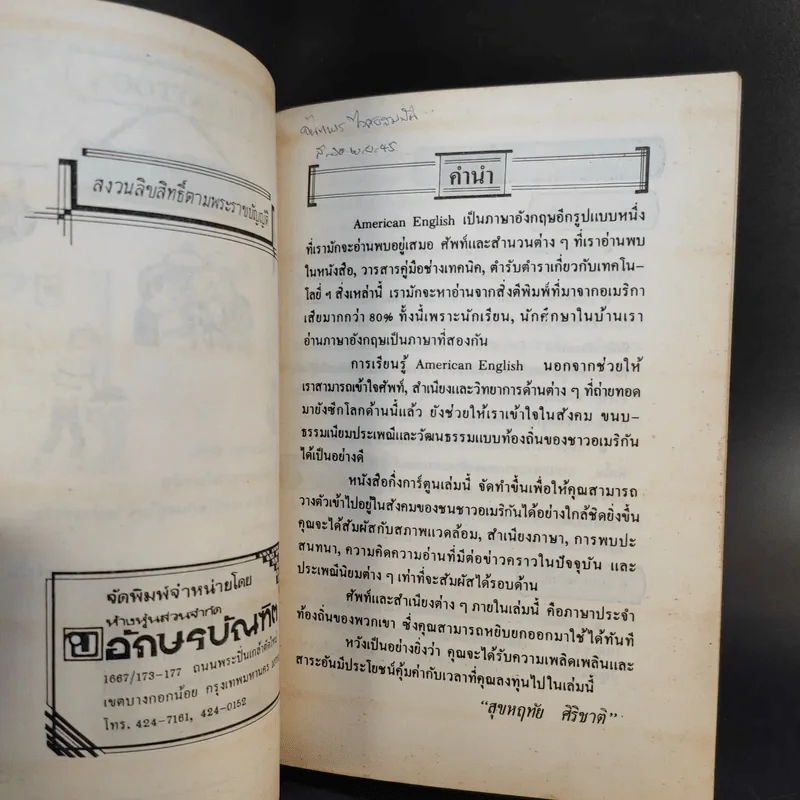 สงวนลิขสิทธิ์ตามพระราชบัญญัติ
จัดพิมพ์จำหน่ายโดย
ห้างหุ้นส่วนจำกัด
อักษรบัณฑิต
1667/173-177 ถนนพระปิ่นเกล้าตัดใหม่
เขตบางกอกน้อย กรุงเทพมหานคร
โทร. 424-7161, 424-0152
คำนำ
American English เป็นภาษาอังกฤษอีกรูปแบบหนึ่ง
ที่เรามักจะอ่านพบอยู่เสมอ ศัพท์และสำนวนต่าง ๆ ที่เราอ่านพบ
ในหนังสือ, วารสารคู่มือช่างเทคนิค, ตำรับตำราเกี่ยวกับเทคโน-
โลยี่ ฯ สิ่งเหล่านี้ เรามักจะหาอ่านจากสิ่งตีพิมพ์ที่มาจากอเมริกา
เสียมากกว่า 80% ทั้งนี้เพราะนักเรียน, นักศึกษาในบ้านเรา
อ่านภาษาอังกฤษเป็นภาษาที่สองกัน
การเรียนรู้ American English นอกจากช่วยให้
เราสามารถเข้าใจศัพท์, สำเนียงและวิทยาการด้านต่าง ๆ ที่ถ่ายทอด
มายังซีกโลกด้านนี้แล้ว ยังช่วยให้เราเข้าใจในสังคม ขนบ-
ธรรมเนียมประเพณีและวัฒนธรรมแบบท้องถิ่นของชาวอเมริกัน
ได้เป็นอย่างดี
หนังสือกึ่งการ์ตูนเล่มนี้ จัดทำขึ้นเพื่อให้คุณสามารถ
วางตัวเข้าไปอยู่ในสังคมของชนชาวอเมริกันได้อย่างใกล้ชิดยิ่งขึ้น
คุณจะได้สัมผัสกับสภาพแวดล้อม, สำเนียงภาษา, การพบปะ
สนทนา, ความคิดความอ่านที่มีต่อข่าวคราวในปัจจุบัน และ
ประเพณีนิยมต่าง ๆ เท่าที่จะสัมผัสได้รอบด้าน
ศัพท์และสำเนียงต่าง ๆ ภายในเล่มนี้ คือภาษาประจำ
ท้องถิ่นของพวกเขา ซึ่งคุณสามารถหยิบยกออกมาใช้ได้ทันที
หวังเป็นอย่างยิ่งว่า คุณจะได้รับความเพลิดเพลินและ
สาระอันมีประโยชน์คุ้มค่ากับเวลาที่คุณลงทุนไปในเล่มนี้
“สุขหฤทัย ศิริชาติ”